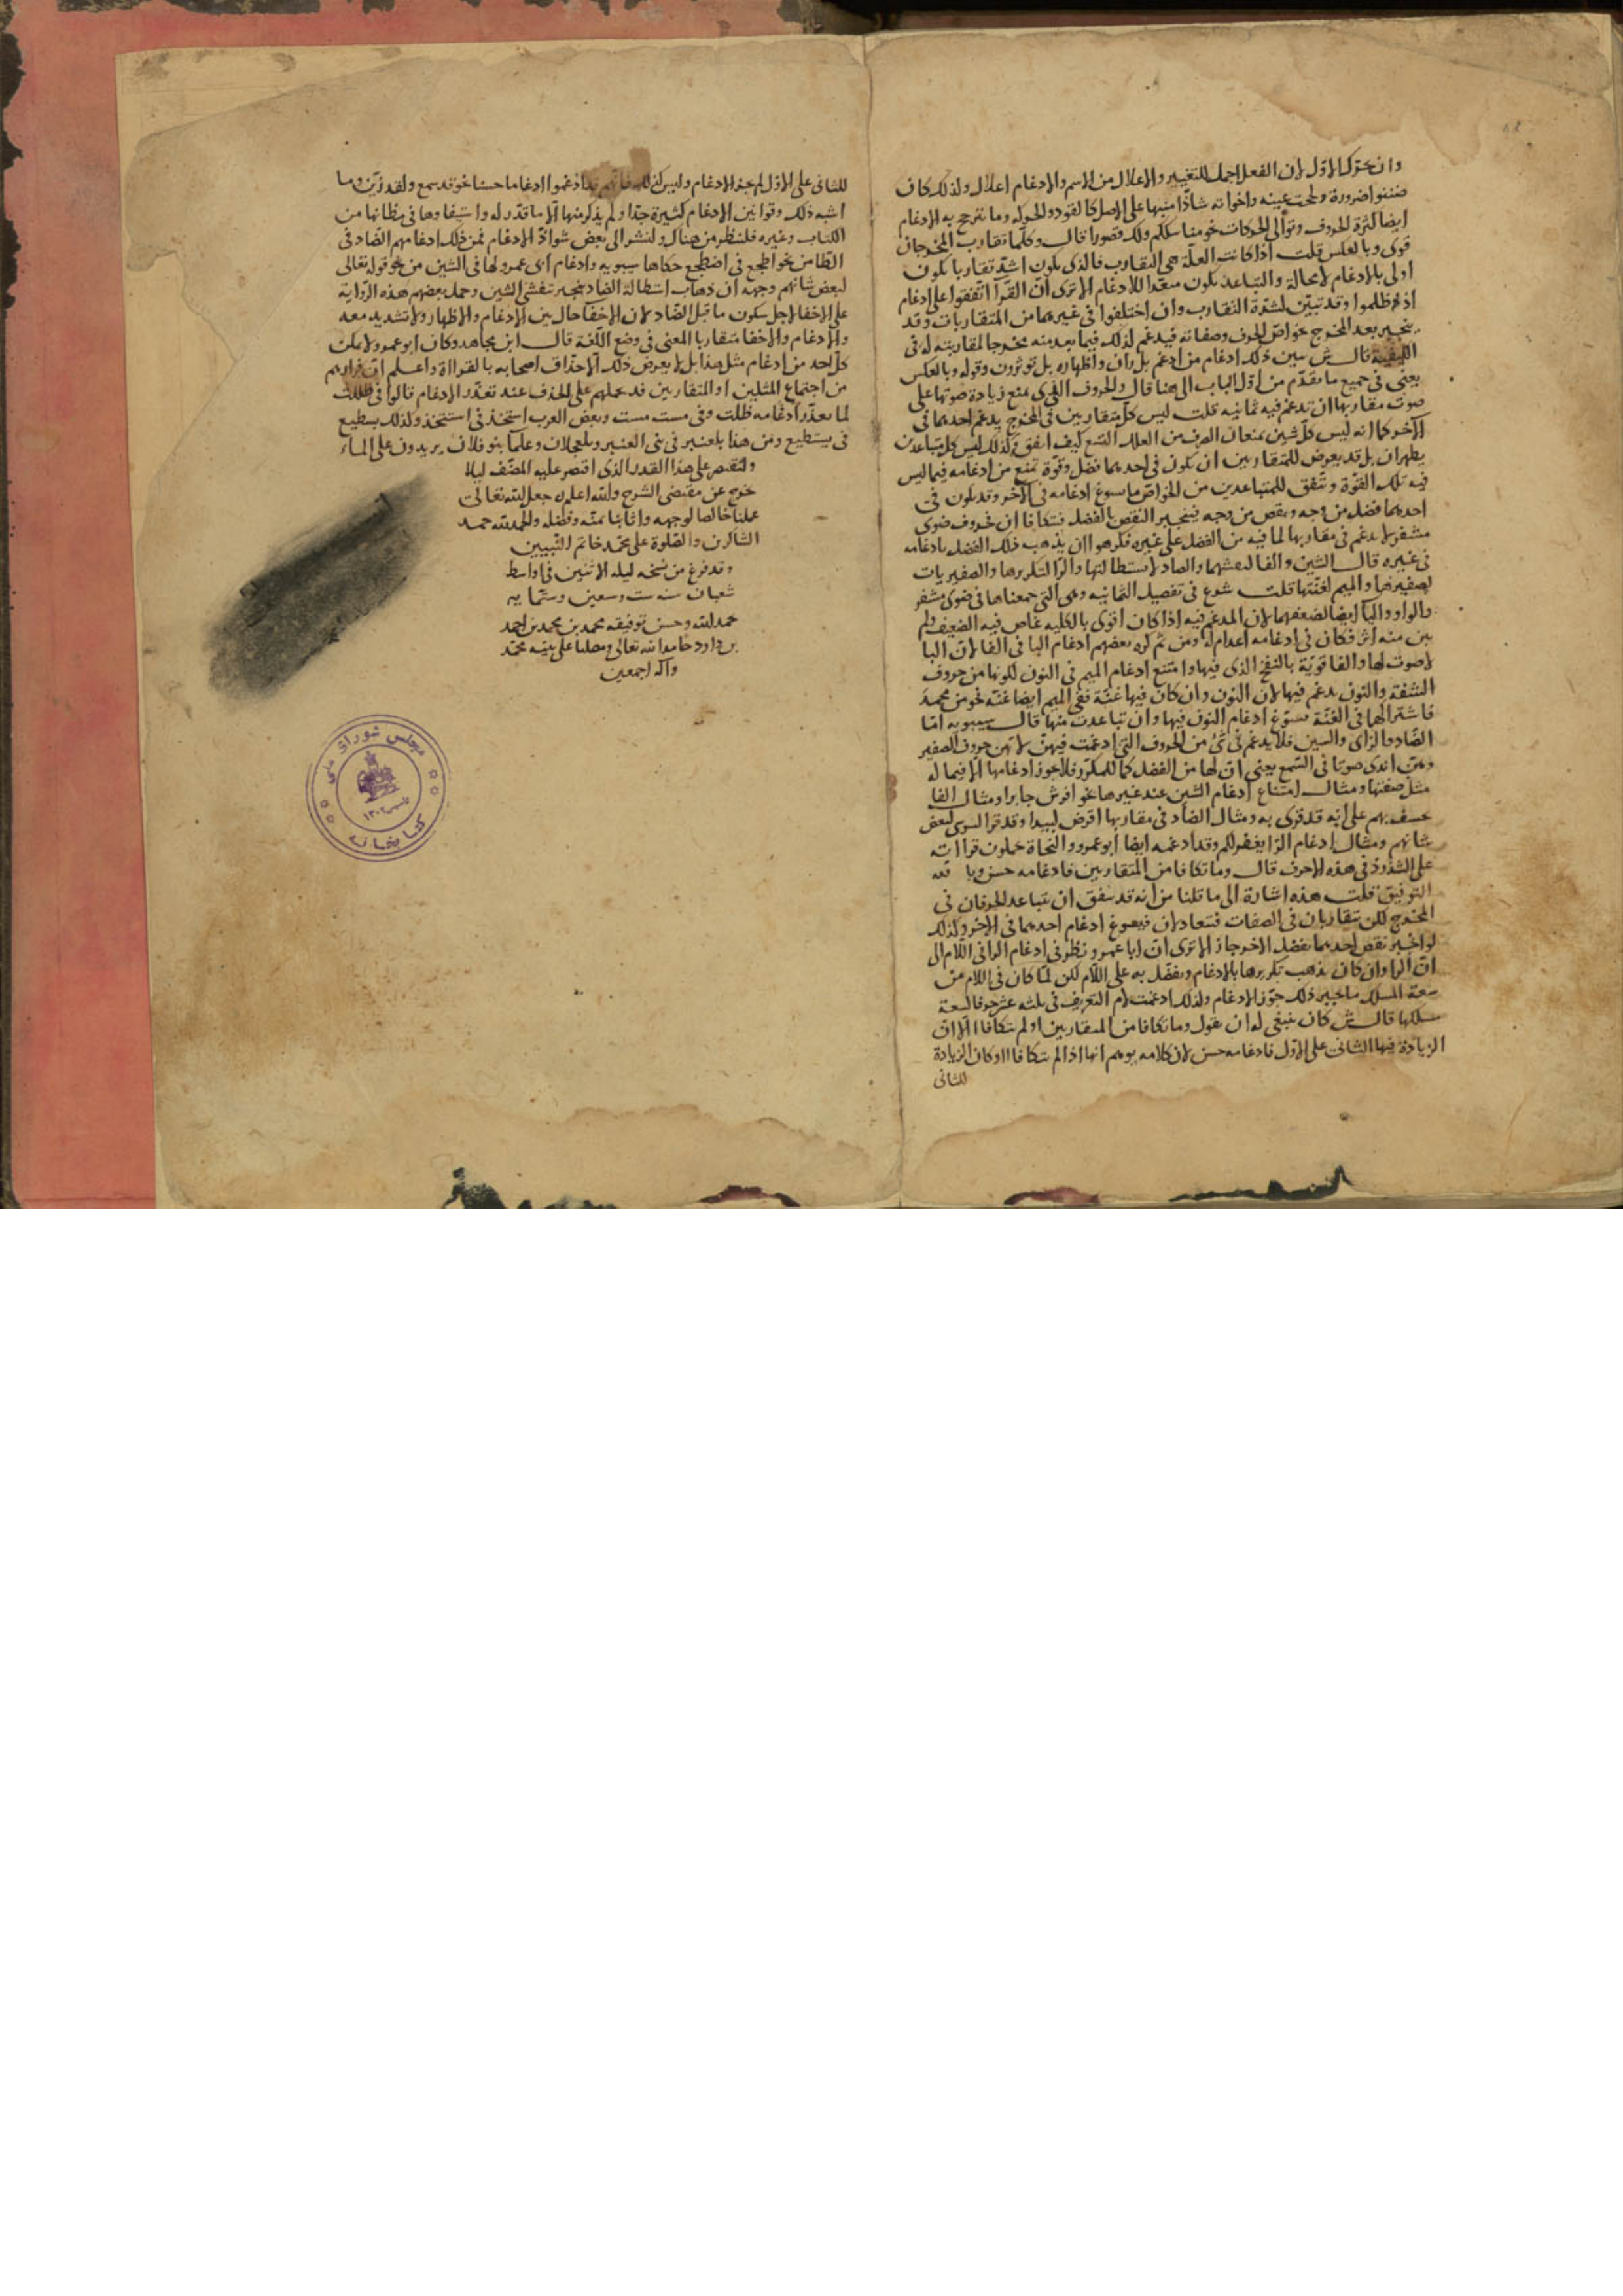 وان تحرك الاول لان الفعل احمل للتغيير والاعلال من الاسم والادغام اعلال ولذلك كان
ضننوا ضرورة ولححت عينه واخواته شاذا منبها على الاصل كالقود والحوكة وما يترجح به الادغام
ايضا كثرة الحروف وتوالى الحركات نحو مناسككم ولك قصورا قال وكلما تقارب المخرجان
قوى وبالعكس قلت اذا كانت العلة هي التقارب فالذى يكون اشد تقاربا يكون
اولى بالادغام لا محالة والتباعد يكون مبعدا للادغام الا ترى ان القرآ اتفقوا على ادغام
اذ ظلموا وقد تبين لشدة التقارب وان اختلفوا في غيرهما من المتقاربات وقد
ينجبر بعد المخرج بخواص الحرف وصفاته فيدغم لذلك فيما بعد منه مخرجا لمقاربته له في
الكيفية قال ش يبين ذلك ادغام من ادغم بل ران واظهاره بل تؤثرون وقوله وبالعكس
يعنى في جميع ما تقدم من اول الباب الى هنا قال والحروف التي يمنع زيادة صوتها على
صوت مقاربها ان تدغم فيه ثمانية قلت ليس كل متقاربين في المخرج يدغم احدهما في
الآخر كما انه ليس كل شين يمنعان الصرف من العلل التسع كيف اتفق وكذلك ليس كل متباعدين
يظهران بل قد يعرض للمتقاربين ان يكون في احدهما فضل وقوة تمنع من ادغامه فيما ليس
فيه تلك القوة وتتفق للمتباعدين من الخواص ما يسوغ ادغامه في الآخر وقد يكون في
احدهما فضل من وجه ونقص من وجه فينجبر النقص بالفضل فتكافا ان فحروف ضوى
مشفر لا تدغم في مقاربها لما فيه من الفضل على غيره فكرهوا ان يذهب ذلك الفضل بادغامه
في غيره قال الشين والفا لتفشيهما والضاد لاستطالتها والرا لتكريرها والصفيريات
لصفيرها والميم لغنتها قلت شرع في تفصيل الثمانية وهي التي جمعناها في ضوى مشفر
والواو واليا ايضا لضعفهما لان المدغم فيه اذا كان اقوى بالكلية غاص فيه الضعيف ولم
يبن منه اثر فكان في ادغامه اعدام له ومن ثم كره بعضهم ادغام البا في الفا لان البا
لا صوت لها والفا قوية بالنفخ الذى فيها وامتنع ادغام الميم في النون لكونها من حروف
الشفة والنون تدغم فيها لان النون وان كان فيها غنة ففى الميم ايضا غنة نحو من محمد
فاشتراكهما في الغنة يسوغ ادغام النون فيها وان تباعدت منها قال سيبويه اما
الصاد والزاى والسين فلا يدغم في شئ من الحروف التي ادغمت فيهن لانهن حروف الصفير
وهن اندى صوتا في السمع يعنى ان لها من الفضل كما للمكرر فلا يجوز ادغامها الا فيما له
مثل صفتها ومثال امتناع ادغام الشين عند غيرها نحو افرش جابرا ومثال الفا
نخسف بهم على انه قد قرى به ومثال الضاد في مقاربها اقرض لبيدا وقد قرا السوسى لبعض
شانهم ومثال ادغام الرا يغفر لكم وقد ادغمه ايضا ابو عمرو والنحاة يحملون قراآته
على الشذوذ في هذه الاحرف قال وما تكافا من المتقاربين فادغامه حسن وبالله
التوفيق قلت هذه اشارة الى ما قلنا من انه قد يتفق ان يتباعد الحرفان في
المخرج لكن يتقاربان في الصفات فتتعادلان فيسوغ ادغام احدهما في الآخر وكذلك
لو انجبر نقص احدهما بفضل الآخر جاز الا ترى ان ابا عمرو نظر في ادغام الرا في اللام الى
ان الرا وان كان يذهب تكريرها بالادغام وتفضل به على اللام لكن لما كان في اللام من
سعة المسلك ما يجبر ذلك جوز الادغام ولذلك ادغمت لام التعريف في ثلثة عشر حرفا لسعة
مسلكها قال ش كان ينبغى له ان يقول وما تكافا من المتقاربين او لم يتكافا الا ان
الزيادة فيها للثانى على الاول فادغامه حسن لان كلامه يوهم انها اذا لم يتكافا او كان الزيادة
للثانى
للثانى على الاول لم يجز الادغام وليس كذلك فانهم قد ادغموا ادغاما حسنا نحو قد سمع ولقد زين وما
اشبه ذلك وقوانين الادغام كثيرة جدا ولم يذكر منها الا ما قدر له واستيفاوها في مظانها من
الكتاب وغيره فلينظر من هناك ولنشر الى بعض شواذ الادغام فمن ذلك ادغامهم الضاد في
الطا من نحو اطجع في اضطجع حكاها سيبويه وادغام ابى عمرو لها في الشين من نحو قوله تعالى
لبعض شانهم وجهه ان ذهاب استطالة الضاد ينجبر بتفشى الشين وحمل بعضهم هذه الرواية
على الاخفا لاجل سكون ما قبل الضاد لان الاخفا حال بين الادغام والاظهار ولا تشديد معه
والادغام والاخفا متقاربا المعنى في وضع اللغة قال ابن مجاهد وكان ابو عمرو لا يمكن
كل احد من ادغام مثل هذا بل لا يعرض ذلك الا حذاق اصحابه بالقراآة واعلم ان فرارهم
من اجتماع المثلين او المتقاربين قد يحملهم على الحذف عند تعذر الادغام قالوا في ظللت
لما تعذر ادغامه ظلت وفي مسست مست وبعض العرب استخذ في استتخذ وكذلك يسطيع
في يستطيع ومن هذا بلعنبر في بنى العنبر وبلعجلان وعلماء بنو فلان يريدون على الماء
ولنقتصر على هذا القدر الذى اقتصر عليه المصنف ليلا
نخرج عن مقتضى الشرح والله اعلم جعل الله تعالى
عملنا خالصا لوجهه واثابنا بمنه وفضله والحمد لله حمد
الشاكرين والصلوة على محمد خاتم النبيين
وقد فرغ من نسخه ليلة الاثنين في اواسط
شعبان سنة ست وسعين وستمايه
بحمد الله وحسن توفيقه محمد بن محمد بن احمد
بن داود حامدا لله تعالى ومصليا على نبيه محمد
وآله اجمعين
مجلس شورای ملی
کتابخانه